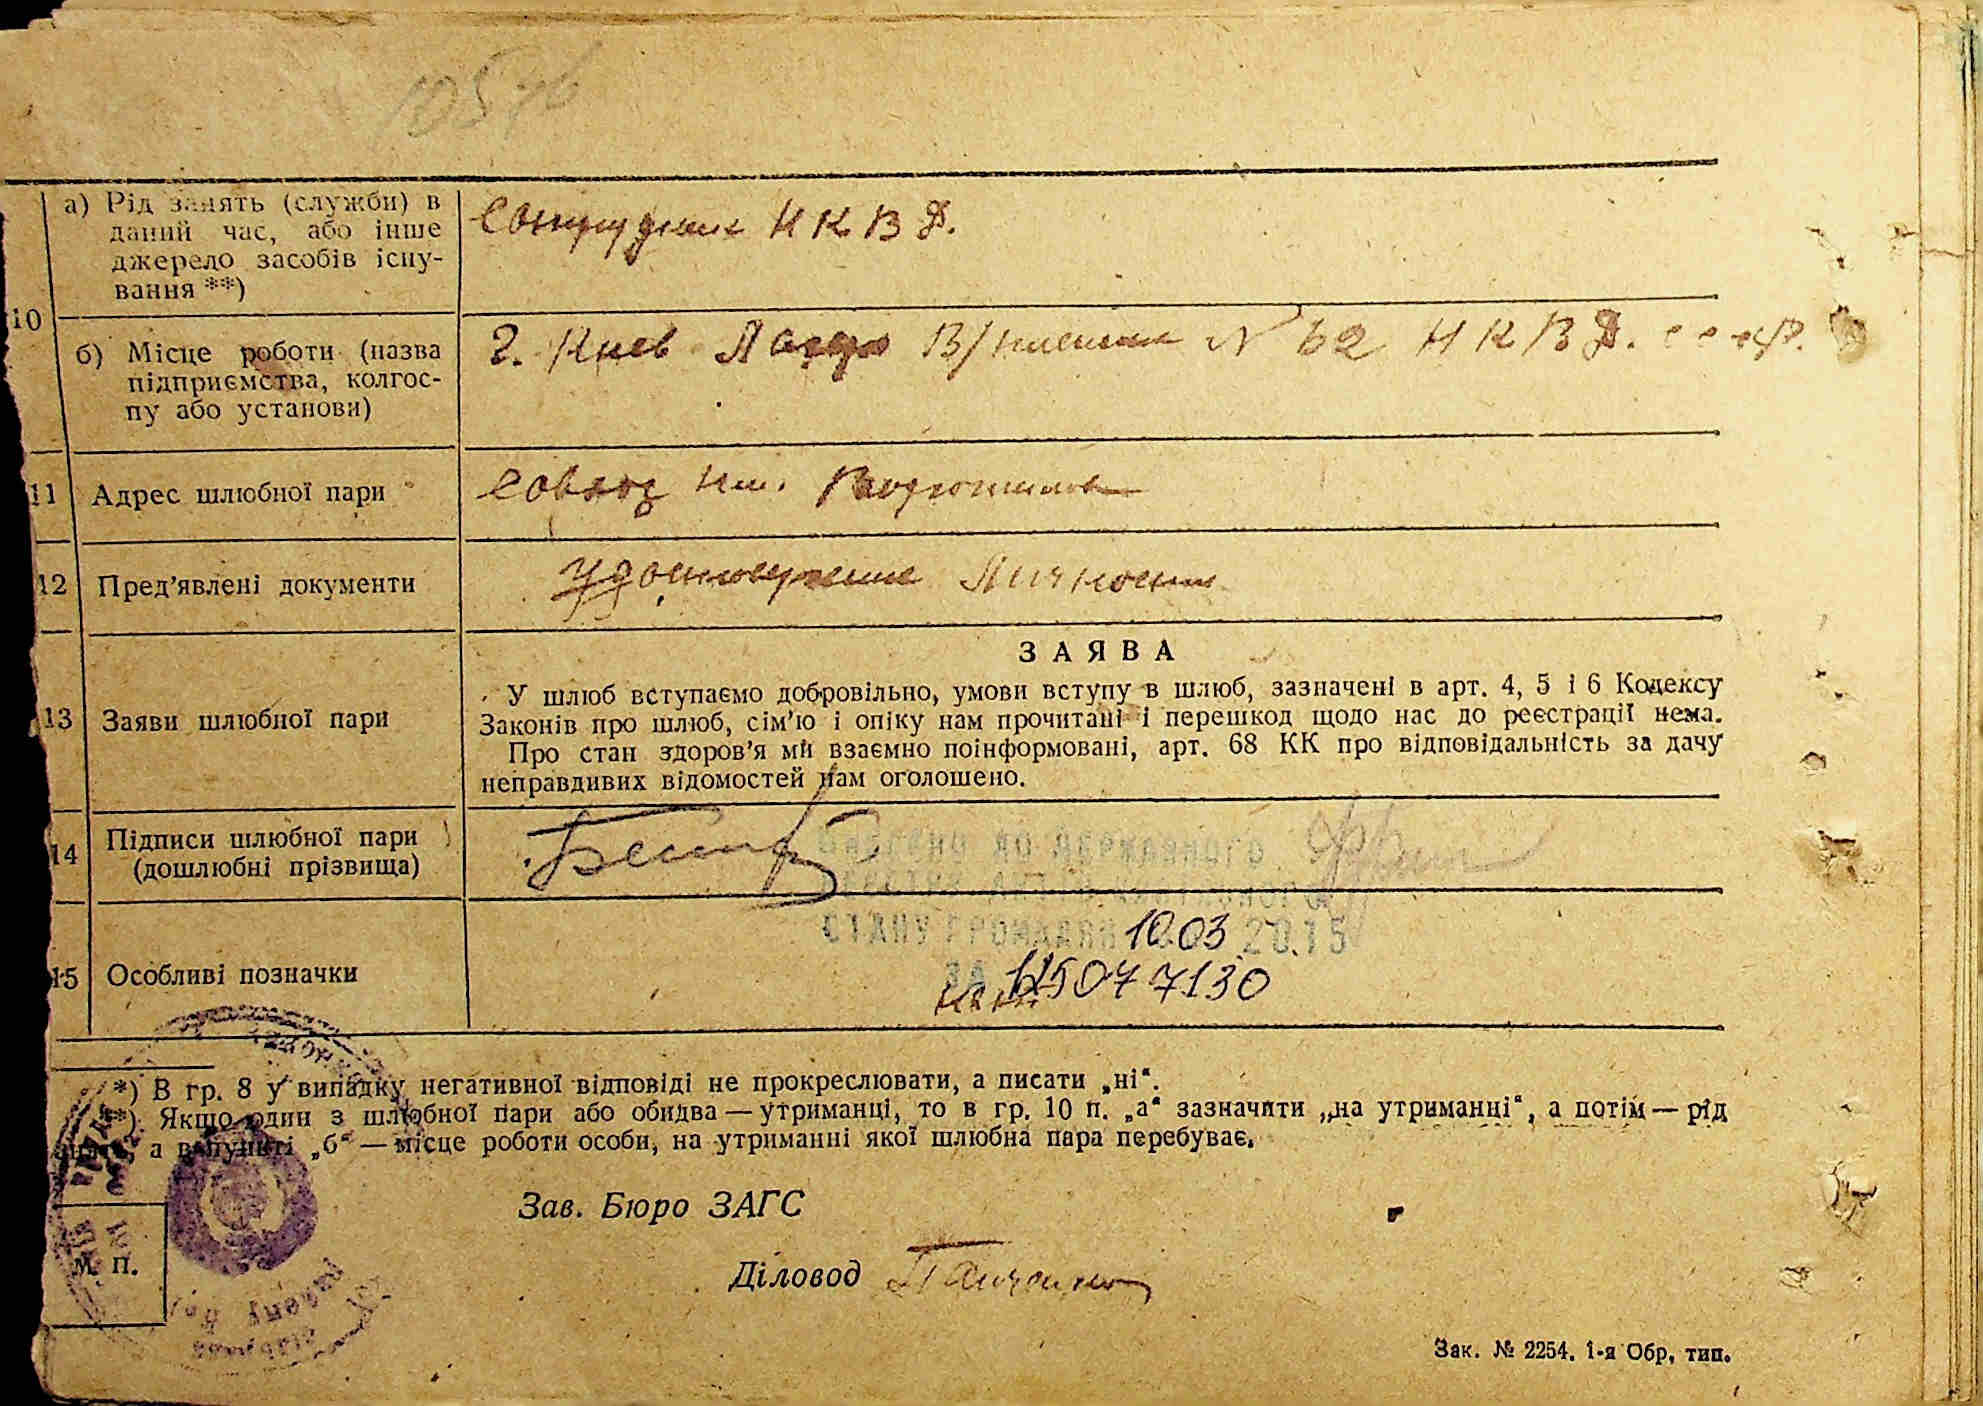 а) Рід занять (служби) в
даний час, або інше
джерело засобів існу-
вання **)
Сотрудник НКВД.
10
б) Місце роботи (назва
підприємства, колгос-
пу або установи)
г. Киев Лагерь В/пленных № 62 НКВД. ссср.
11 Адрес шлюбної пари
Совхоз им. Ворошилова
12 Пред’явлені документи
Удостоверение Личности
13 Заяви шлюбної пари
ЗАЯВА
У шлюб вступаємо добровільно, умови вступу в шлюб, зазначені в арт. 4, 5 і 6 Кодексу
Законів про шлюб, сім’ю і опіку нам прочитані і перешкод щодо нас до реєстрації нема.
Про стан здоров’я ми взаємно поінформовані, арт. 68 КК про відповідальність за дачу
неправдивих відомостей нам оголошено.
14 Підписи шлюбної пари
(дошлюбні прізвища)
Внесено до Державного
реєстру актів цивільного
стану громадян 10.03 2015
за № 15077130
15 Особливі позначки
*) В гр. 8 у випадку негативної відповіді не прокреслювати, а писати „ні“.
**) Якщо один з шлюбної пари або обидва — утриманці, то в гр. 10 п. „а“ зазначити „на утриманні“, а потім — рід
занять, а в пункті „б“ — місце роботи особи, на утриманні якої шлюбна пара перебуває.
Зав. Бюро ЗАГС
М. П.
Діловод
Зак. № 2254. 1-я Обр. тип.